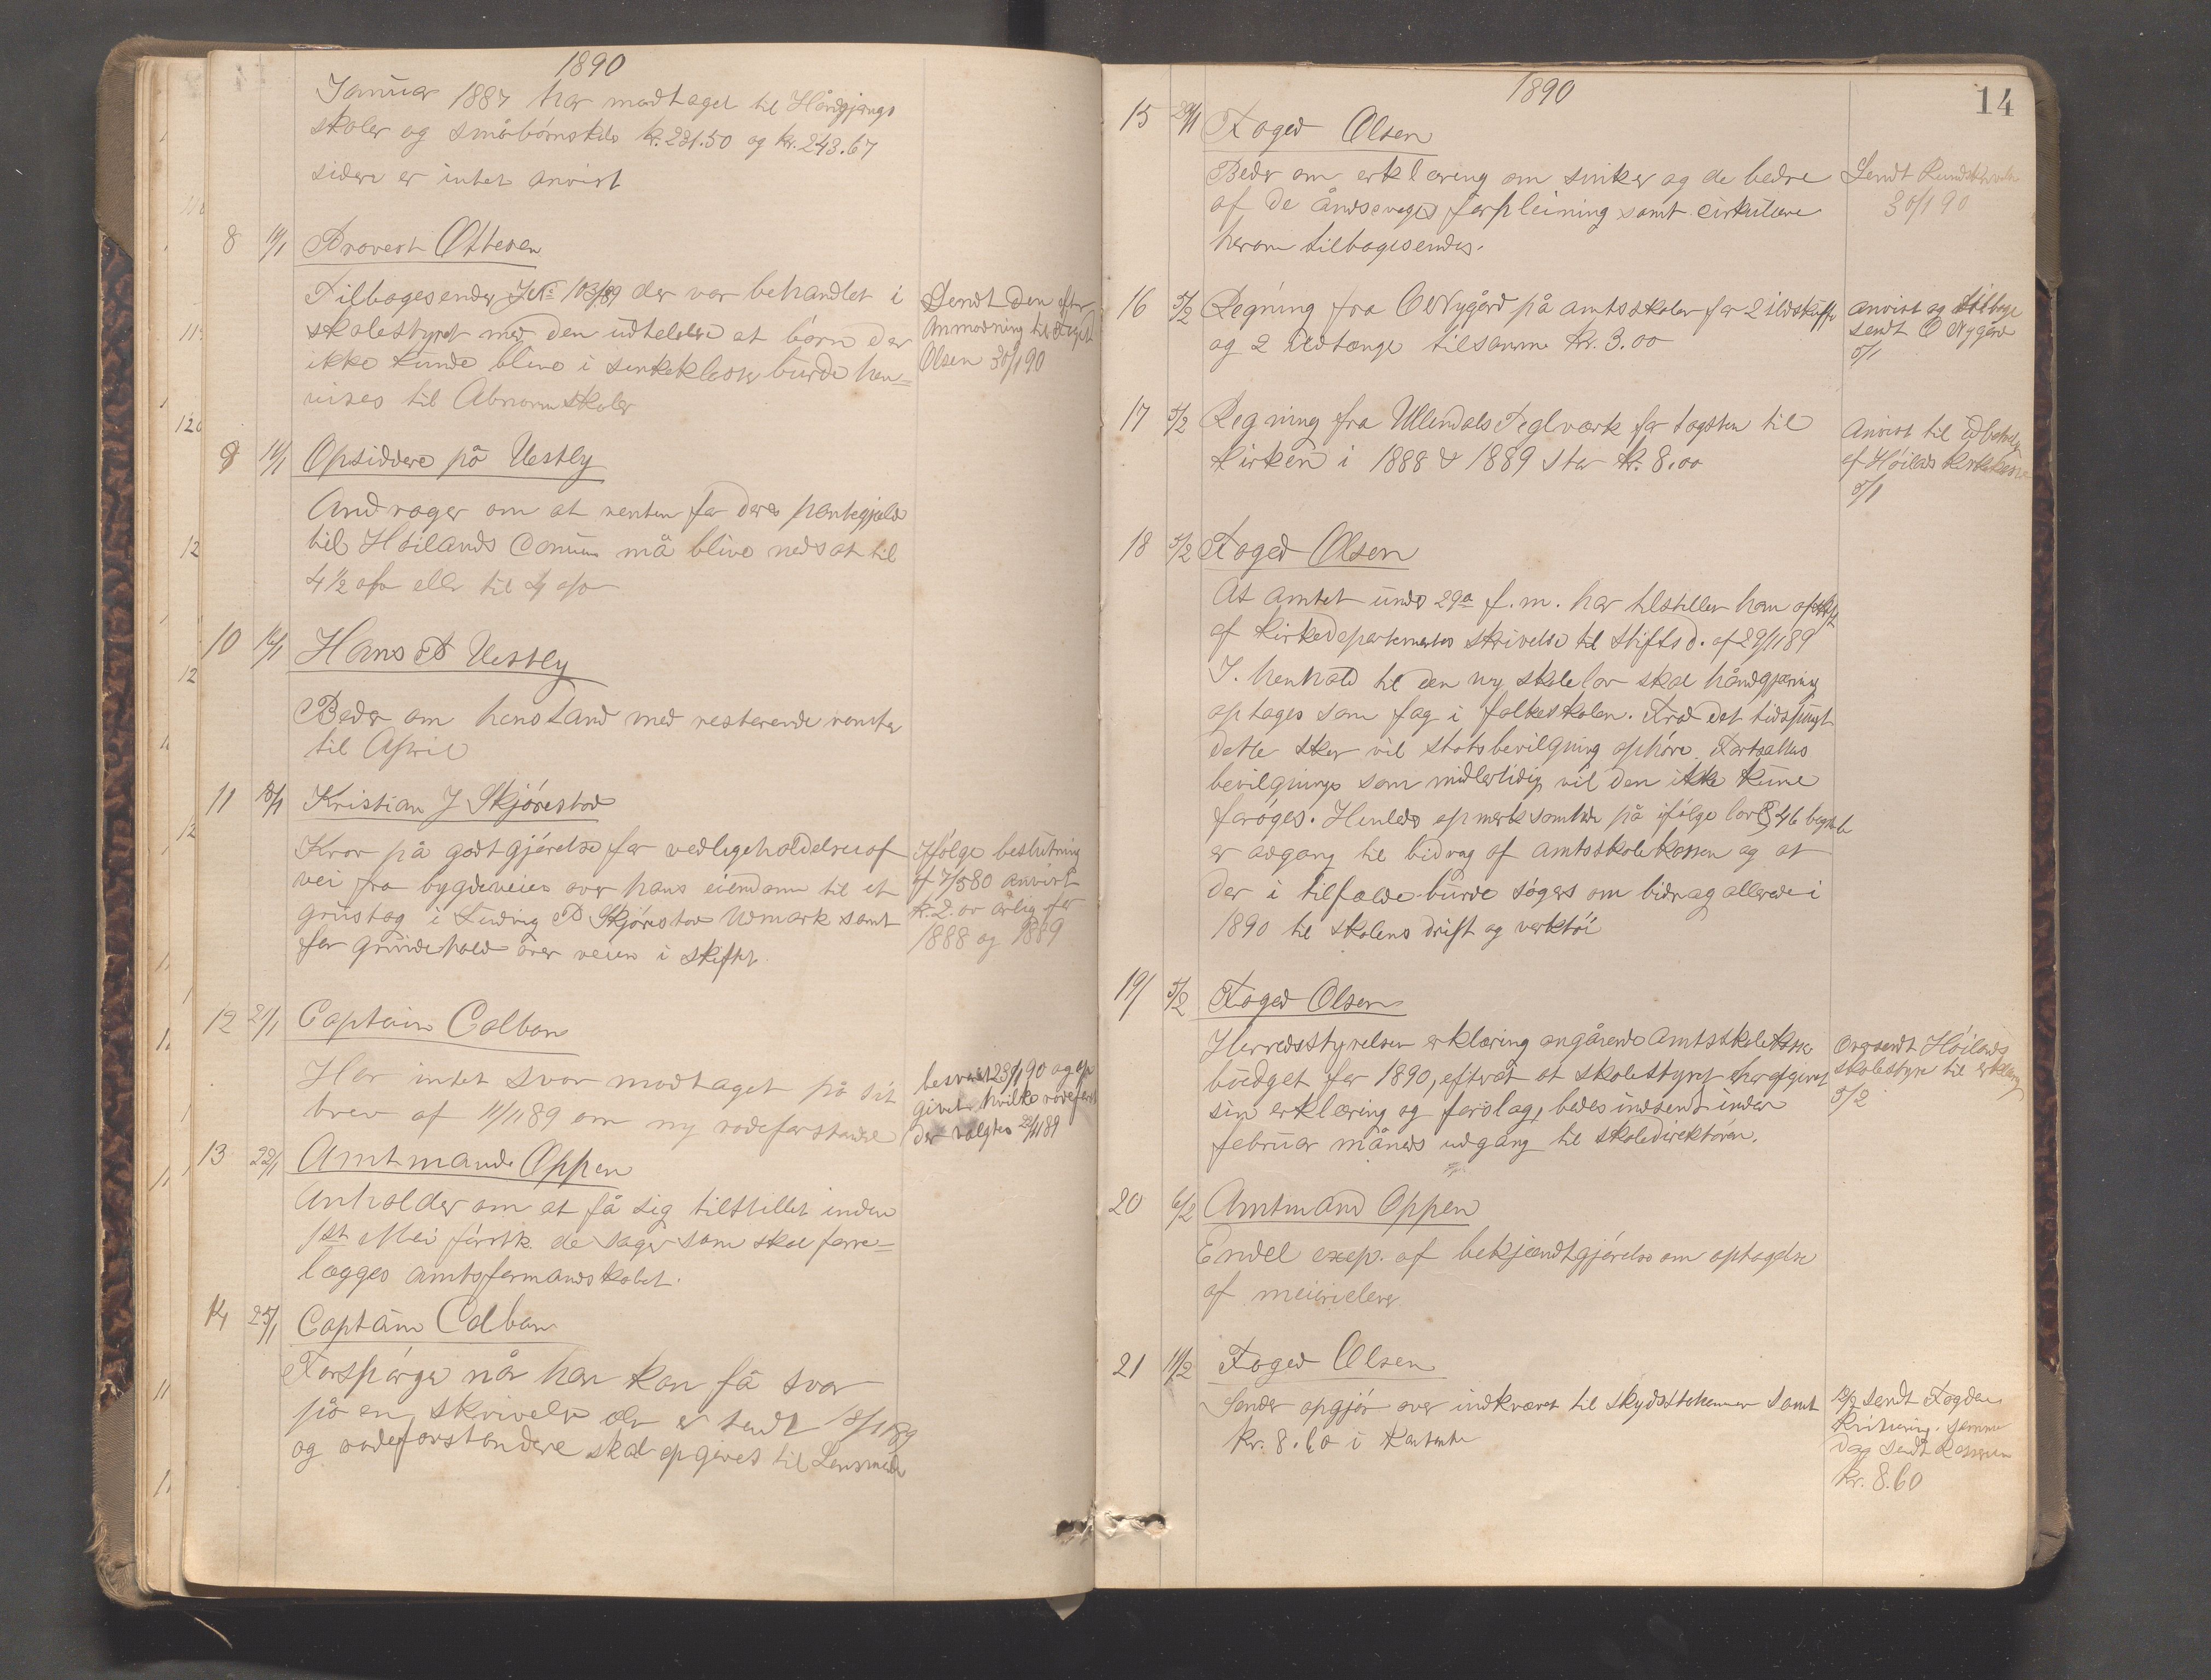 1890
Januar 1887 har modtaget til Håndgjernings
skoler og småbørnskole kr. 231.50 og kr. 243.67
sidere er intet anvist
8 11/1 Provest Ottesen
Tilbagesender JNo 103/89 der var behandlet i
skolestyret med den udtalelse at børn der
ikke kunde blive i sinkeklasse burde hen=
vises til Abnormskoler
Sendt den efter
Anmodning til Foged
Olsen 30/1 90
9 14/1 Opsiddere på Vestly
Andrager om at renten for deres pantegjæld
til Høilands Comune må blive nedsat til
4 1/2 o/o eller til 4 o/o
10 16/1 Hans P Vestly
Beder om henstand med resterende renter
til April
11 18/1 Kristian J Skjørestad
Krav på godtgjørelse for vedligeholdelse af
vei fra bygdeveien over hans eiendom til et
grustag i Ludvig P Skjørestad Udmark samt
for grindehold over veien i skiftet.
Ifølge beslutning
af 7/5 80 anvist
kr. 2.00 årlig for
1888 og 1889
12 21/1 Captain Colban
Har intet svar modtaget på sit
brev af 11/11 89 om ny rodeforstander
besvart 23/1 90 og op
givet hvilke rodeforst
der valgtes 22/11 89
13 22/1 Amtmand Oppen
Anholder om at få sig tilstillet inden
1st Mai førstk. de sager som skal fore=
lægges amtsformandskabet.
14 25/1 Captain Colban
Forspørger når han kan få svar
på en skrivelse der er sendt 18/11 89
og rodeforstandere skal opgives til Lensmand
1890
14
15 29/1 Foged Olsen
Beder om erklæring om sinker og de bedre
af de åndssvages forpleining samt cirkulære
herom tilbagesendes.
Sendt Rundskrivelse
30/1 90
16 5/2 Regning fra O Nygård på amtsskolen for 2 ildskuffer
og 2 ildtænger tilsamme kr. 3.00
anvist og tilbage
sendt O Nygård
5/1
17 5/2 Regning fra Ullendals Teglværk for tagsten til
kirken i 1888 & 1889 stor kr. 8.00
Anvist til Udbetaling
af Høilands Kirkekasse
5/1
18 5/2 Foged Olsen
At amtet under 29de f. m. har tilstillet ham afskrift
af Kirkedepartementes skrivelse til Stiftsd. af 29/11 89
I henhold til den ny skolelov skal håndgjerning
optages som fag i folkeskolen. Fra det tidspunkt
dette sker vil statsbevilgning ophøre. Fortsættes
bevilgninge som midlertidig vil den ikke kunne
forøges. Henleder opmerksomheden på ifølge lov § 46 bogst. b
er adgang til bidrag af amtsskolekassen og at
der i tilfælde burde søges om bidrag allerede i
1890 til skolens drift og verktøi
19/ 5/2 Foged Olsen
Herredsstyrelsen erklæring angårende Amtsskolekassens
budget for 1890, efterat at skolestyret har afgivet
sin erklæring og forslag, bedes indsendt inden
februar måneds udgang til skoledirektøren.
Oversendt Høilands
skolestyre til erklæring
5/2
20 6/2 Amtmand Oppen
Endel exep. af bekjendtgjørelse om optagelse
af meierielever
21 11/2 Foged Olsen
Sender opgjør over indkrævet til skydsstationer samt
kr. 8.60 i kontanter
12/2 sendt Fogden
kvittering. samme
dag sendt Kassereren
kr. 8.60